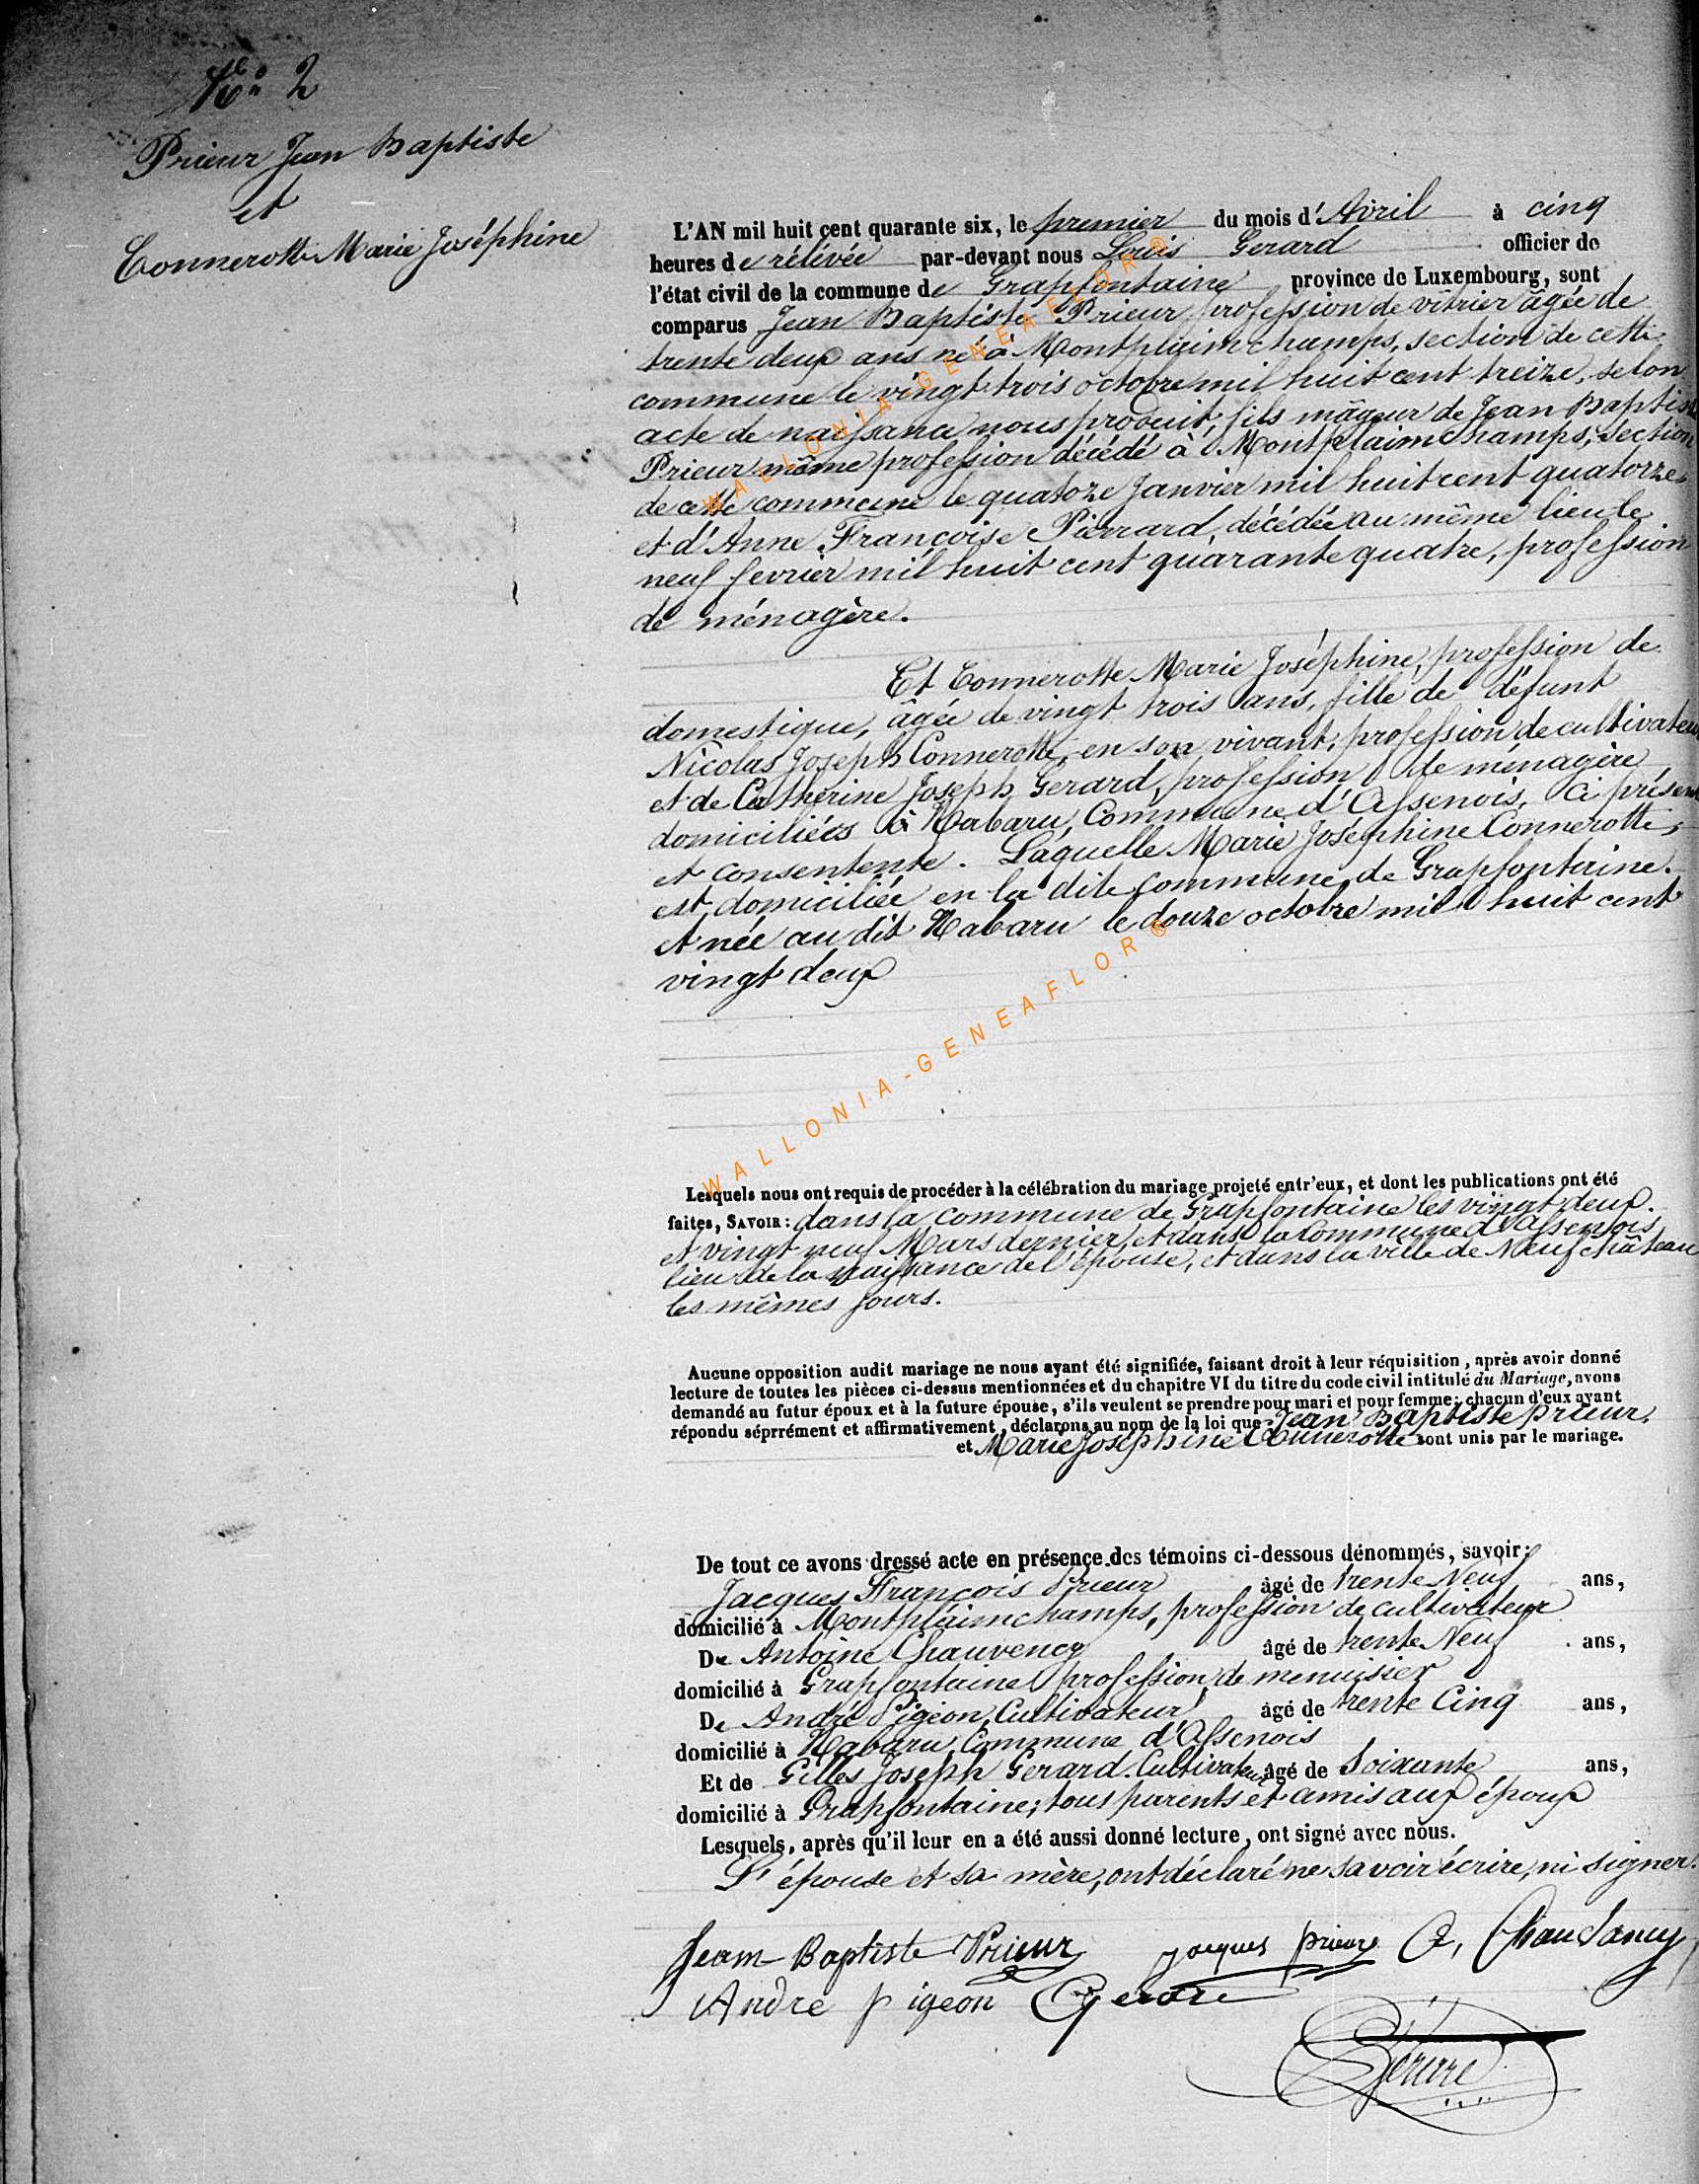 No 2
Prieur Jean Baptiste
et
Connerotte Marie Joséphine
L'AN mil huit cent quarante six, le premier du mois d'Avril à cinq
heures de rélévée par-devant nous Louis Gerard officier de
l'état civil de la commune de Grapfontaine province de Luxembourg, sont
comparus Jean Baptiste Prieur profession de vitrier âgée de
trente deux ans né à Montplaimchamps, section de cette
commune le vingt trois octobre mil huit cent treize, selon
acte de naissance nous produit, fils mageur de Jean Baptiste
Prieur même profession décédé à Montplaimchamps, section
de cette commune le quatoze Janvier mil huit cent quatorze
et d'Anne Françoise Pierrard, décédée au même lieu le
neuf fevrier mil huit cent quarante quatre, profession
de ménagère.
Et Connerotte Marie Joséphine, profession de
domestique, âgée de vingt trois ans, fille de défunt
Nicolas Joseph Connerotte, en son vivant, profession de cultivateur
et de Catherine Joseph Gerard, profession de ménagère
domiciliées à Nabaru, Commune d'Assenois, Ci présente
et consentente. Laquelle Marie Joséphine Connerotte,
est domiciliée en la dite Commune de Grapfontaine.
et née au dit Nabaru le douze octobre mil huit cent
vingt deux
WALLONIA-GENEAFLOR®
WALLONIA-GENEAFLOR®
Lesquels nous ont requis de procéder à la célébration du mariage projeté entr'eux, et dont les publications ont été
faites, SAVOIR: dans la commune de Grapfontaine les vingt deux.
et vingt neuf Mars dernier, et dans la Commune d'Assenois
lieu de la naissance de l'épouse, et dans la ville de Neufchâteau
les mêmes jours.
Aucune opposition audit mariage ne nous ayant été signifiée, faisant droit à leur réquisition, après avoir donné
lecture de toutes les pièces ci-dessus mentionnées et du chapitre VI du titre du code civil intitulé du Mariage, avons
demandé au futur époux et à la future épouse, s'ils veulent se prendre pour mari et pour femme; chacun d'eux ayant
répondu séprrément et affirmativement, déclarons au nom de la loi que Jean Baptiste Prieur.
et Marie Joséphine Connerotte sont unis par le mariage.
De tout ce avons dressé acte en présence des témoins ci-dessous dénommés, savoir:
Jacques François Prieur âgé de trente Neuf ans,
domicilié à Montplaimchamps, profession de cultivateur
De Antoine Chauvency âgé de trente Neuf ans,
domicilié à Grapfontaine profession de menuisier
De André Pigeon, Cultivateur âgé de trente Cinq ans,
domicilié à Nabaru, Commune d'Assenois
Et de Gilles Joseph Gerard. Cultivateur âgé de Soixante ans,
domicilié à Grapfontaine; tous parents et amis aux époux
Lesquels, après qu'il leur en a été aussi donné lecture, ont signé avec nous.
L'épouse et sa mère, ont déclaré ne savoir écrire, ni signer.
Jean Baptiste Prieur jacques prieur A, Chauvancy
André pigeon Gerard
Gérard